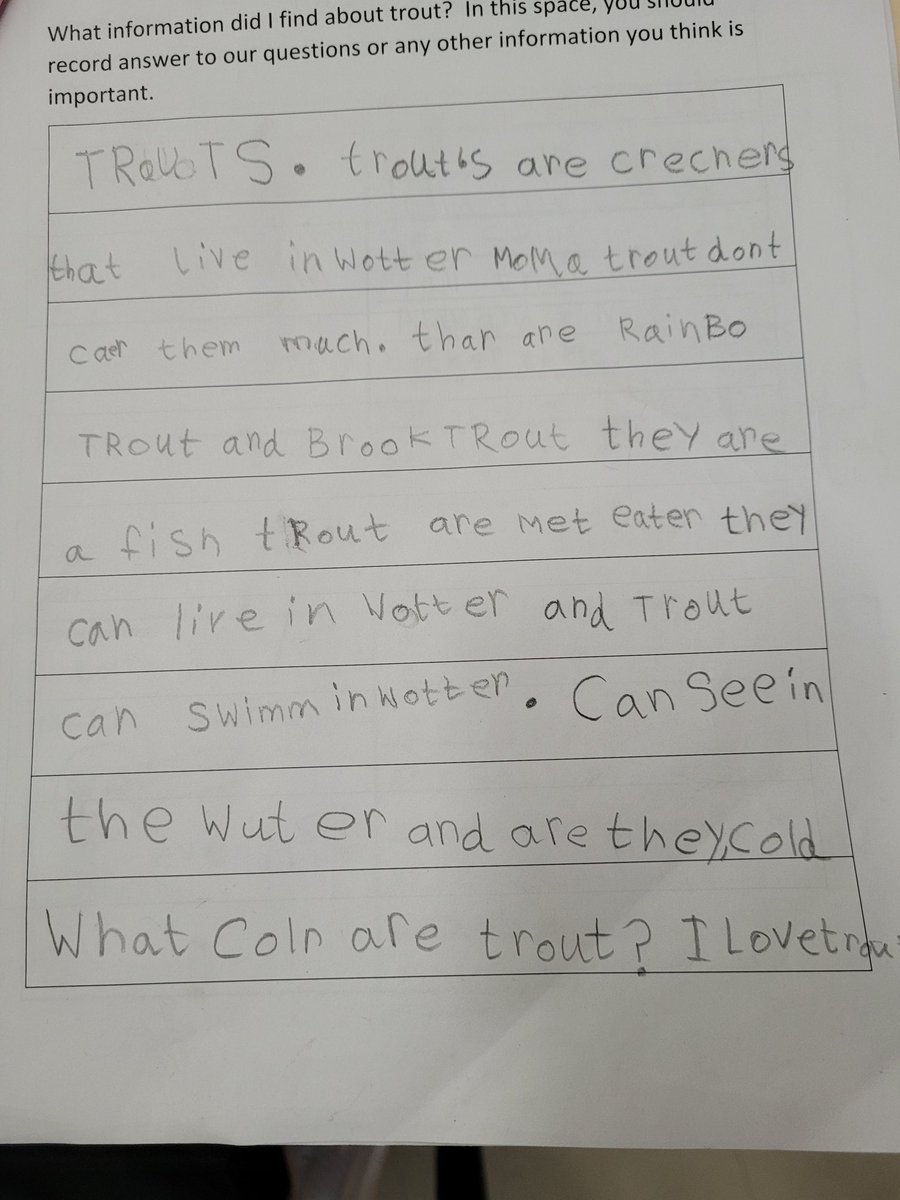 What information did I find about trout? In this space, you should
record answer to our questions or any other information you think is
important.
TRouTS. trout's are crechers
that live in wotter MoMa trout dont
caer them much. thar are RainBo
TRout and Brook TRout they are
a fish tRout are met eater they
can live in Wotter and Trout
can swimm in wotter. Can See in
the Wuter and are they, Cold
What Colr are trout? I Love trou